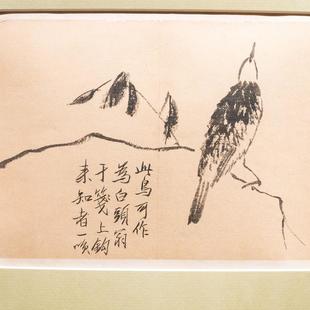 此鸟可作
為白頭翁
于箋上鈎
来知者一噴